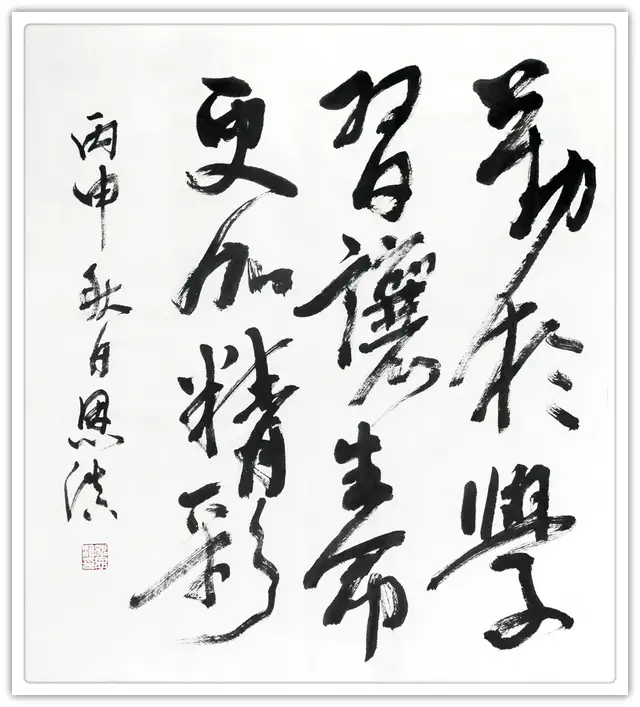 勤於學
習讓生命
更加精彩
丙申秋月恩